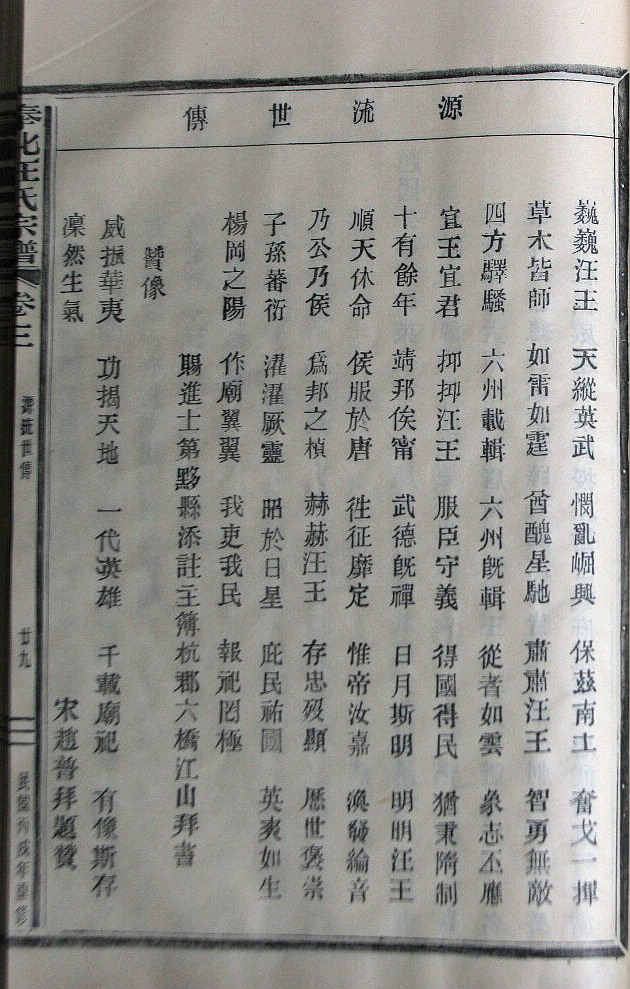 源流世傳
巍巍汪王 天縱英武 憫亂崛興 保茲南土 奮戈一揮
草木皆師 如雷如霆 酋醜星馳 肅肅汪王 智勇無敵
四方驛騷 六州載輯 六州旣輯 從者如雲 象志丕應
宜王宜君 抑抑汪王 服臣守義 得國得民 猶秉隋制
十有餘年 靖邦俟甯 武德旣禪 日月斯明 明明汪王
順天休命 侯服於唐 徃征靡定 惟帝汝嘉 渙發綸音
乃公乃侯 爲邦之楨 赫赫汪王 存忠歿顯 歷世褒崇
子孫蕃衍 濯濯厥靈 昭於日星 庇民祐國 英爽如生
楊岡之陽 作廟翼翼 我吏我民 報祀罔極
賜進士第黟縣添註主簿杭郡六橋江山拜書
贊像
威振華夷 功揭天地 一代英雄 千載廟祀 有像斯存
凜然生氣
宋趙普拜題贊
北汪氏宗譜 卷之二
源流世傳
廿九
民國丙戌年重修